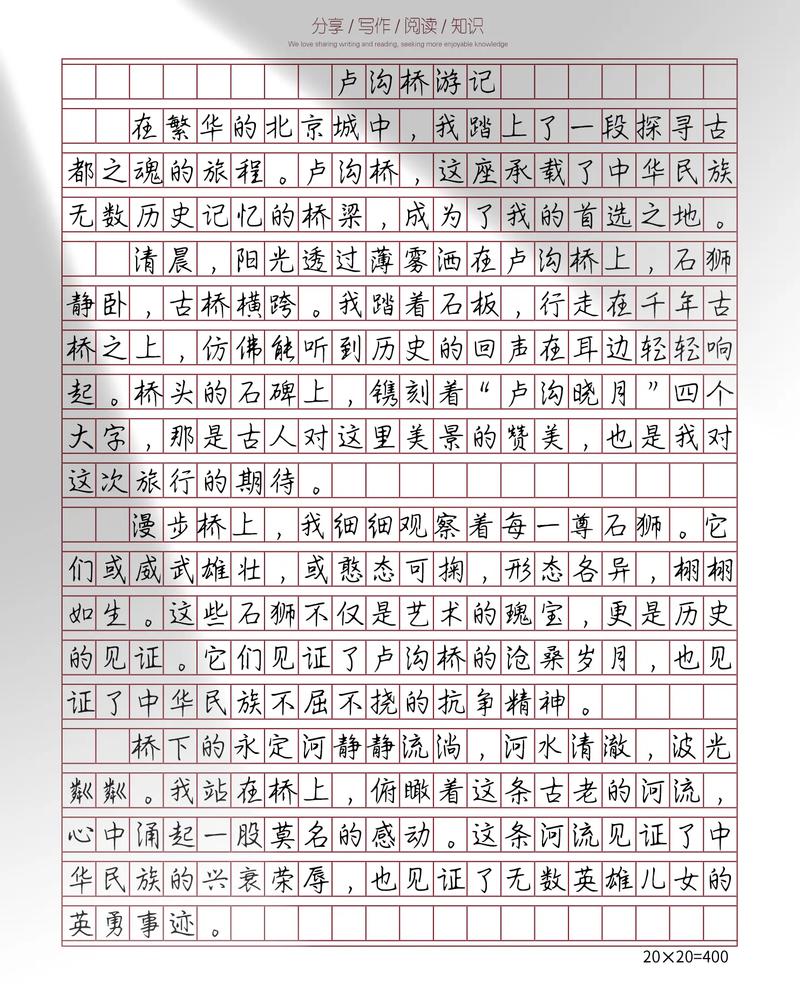 分享 / 写作 / 阅读 / 知识
We love sharing writing and reading, seeking more enjoyable knowledge
卢沟桥游记
在繁华的北京城中，我踏上了一段探寻古
都之魂的旅程。卢沟桥，这座承载了中华民族
无数历史记忆的桥梁，成为了我的首选之地。
清晨，阳光透过薄雾洒在卢沟桥上，石狮
静卧，古桥横跨。我踏着石板，行走在千年古
桥之上，仿佛能听到历史的回声在耳边轻轻响
起。桥头的石碑上，镌刻着“卢沟晓月”四个
大字，那是古人对这里美景的赞美，也是我对
这次旅行的期待。
漫步桥上，我细细观察着每一尊石狮。它
们或威武雄壮，或憨态可掬，形态各异，栩栩
如生。这些石狮不仅是艺术的瑰宝，更是历史
的见证。它们见证了卢沟桥的沧桑岁月，也见
证了中华民族不屈不挠的抗争精神。
桥下的永定河静静流淌，河水清澈，波光
粼粼。我站在桥上，俯瞰着这条古老的河流，
心中涌起一股莫名的感动。这条河流见证了中
华民族的兴衰荣辱，也见证了无数英雄儿女的
英勇事迹。
20×20=400